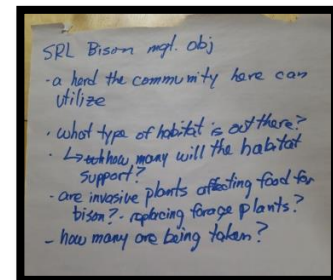 SRL Bison mgt. obj
- a herd the community here can
utilize
• what type of habitat is out there?
• ↳ how many will the habitat
support?
- are invasive plants affecting food for
bison? - replacing forage plants?
- how many are being taken?